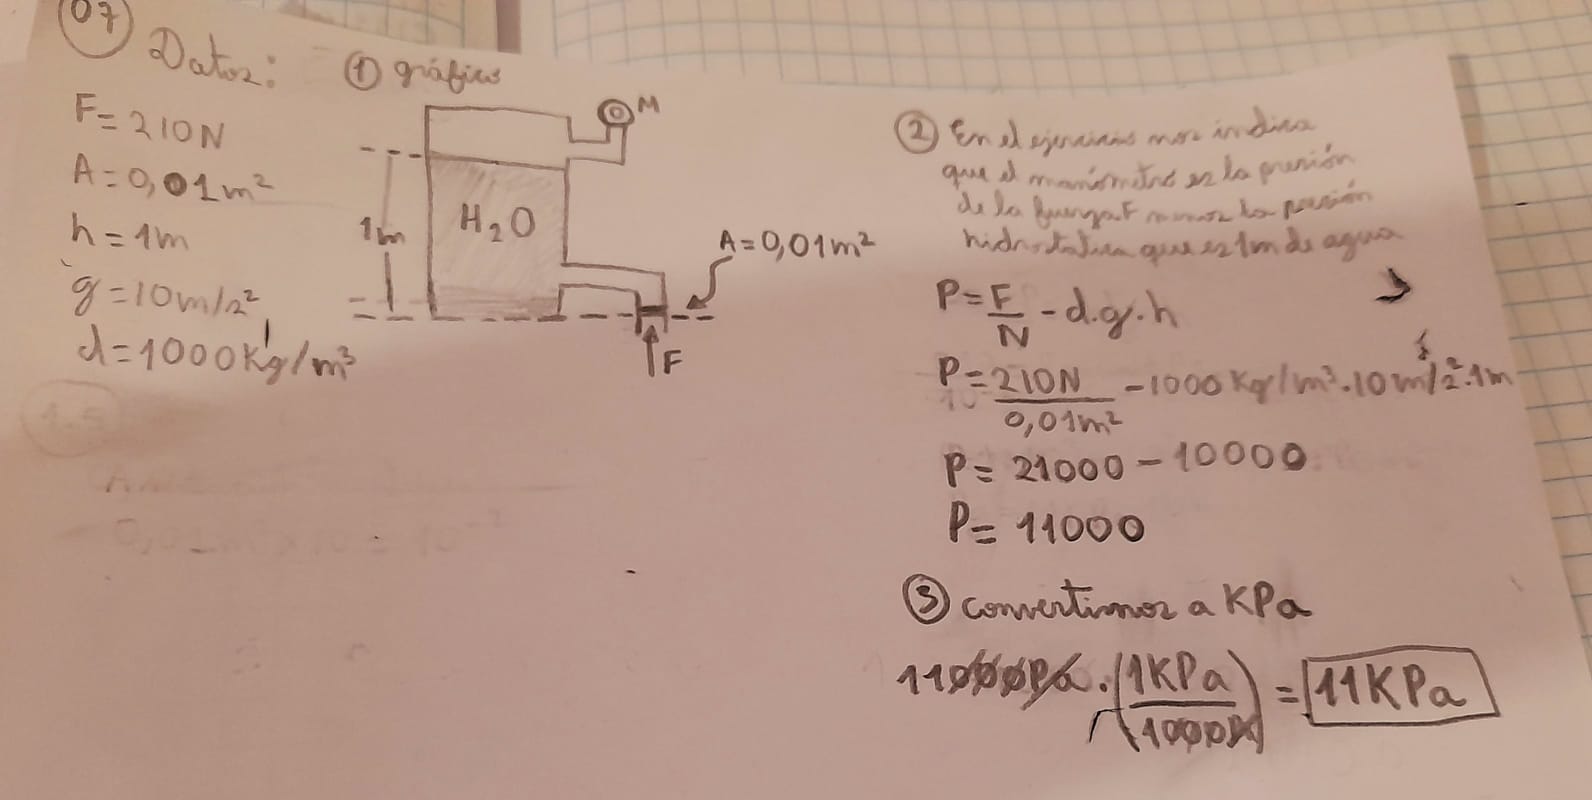 07
Datos:
F=210N
A=0,01m²
h=1m
g=10m/s²
d=1000Kg/m³
① gráfico
M
1m
H₂O
A=0,01m²
F
② En el ejercicio nos indica
que el manómetro es la presión
de la fuerza F menos la presión
hidrostatica que es 1m de agua
P=F/N - d.g.h
P=210N/0,01m² -1000 Kg/m³.10m/s².1m
P= 21000-10000
P= 11000
③ convertimos a KPa
11000Pa.(1KPa/1000Pa)=11KPa